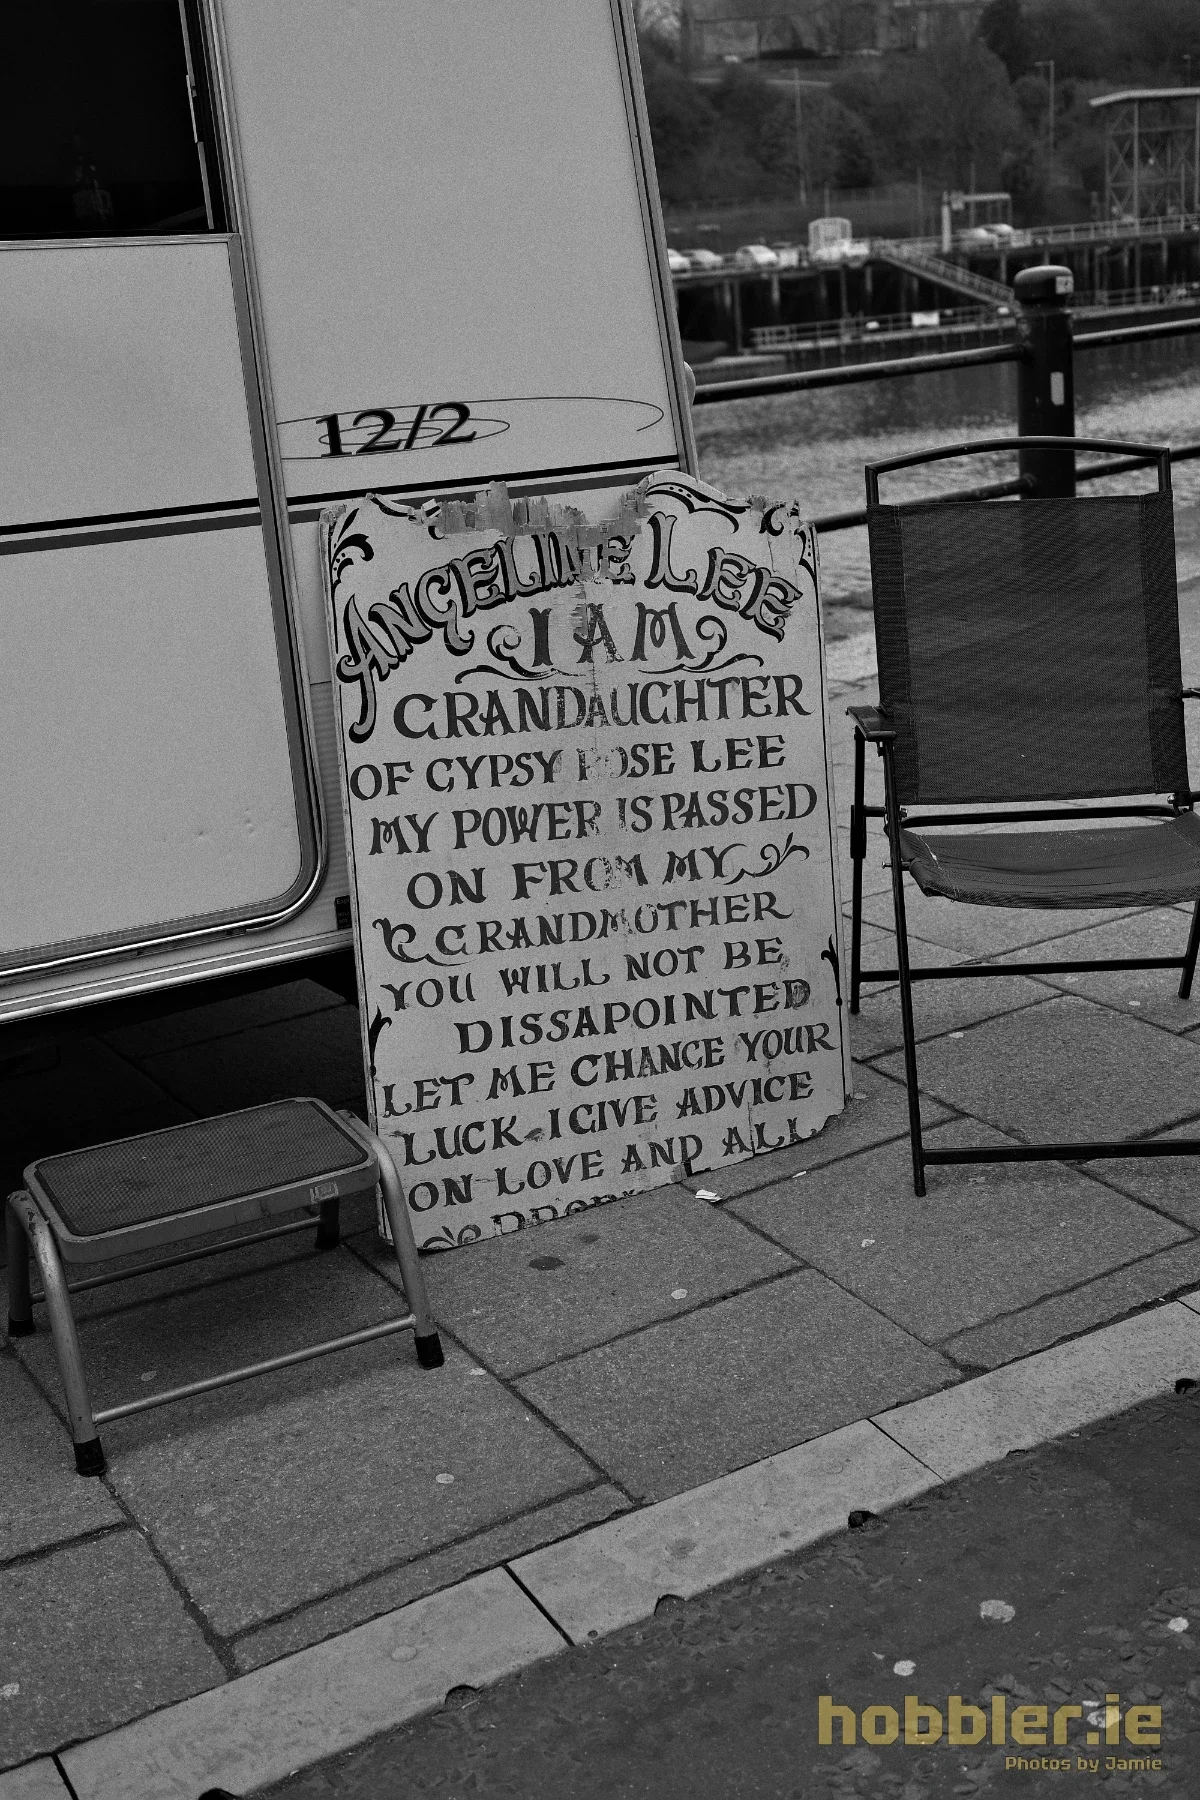 12/2
ANGELINE LEE
I AM
GRANDAUGHTER
OF GYPSY ROSE LEE
MY POWER IS PASSED
ON FROM MY
GRANDMOTHER
YOU WILL NOT BE
DISSAPOINTED
LET ME CHANGE YOUR
LUCK. I GIVE ADVICE
ON LOVE AND ALL
hobbler.ie
Photos by Jamie